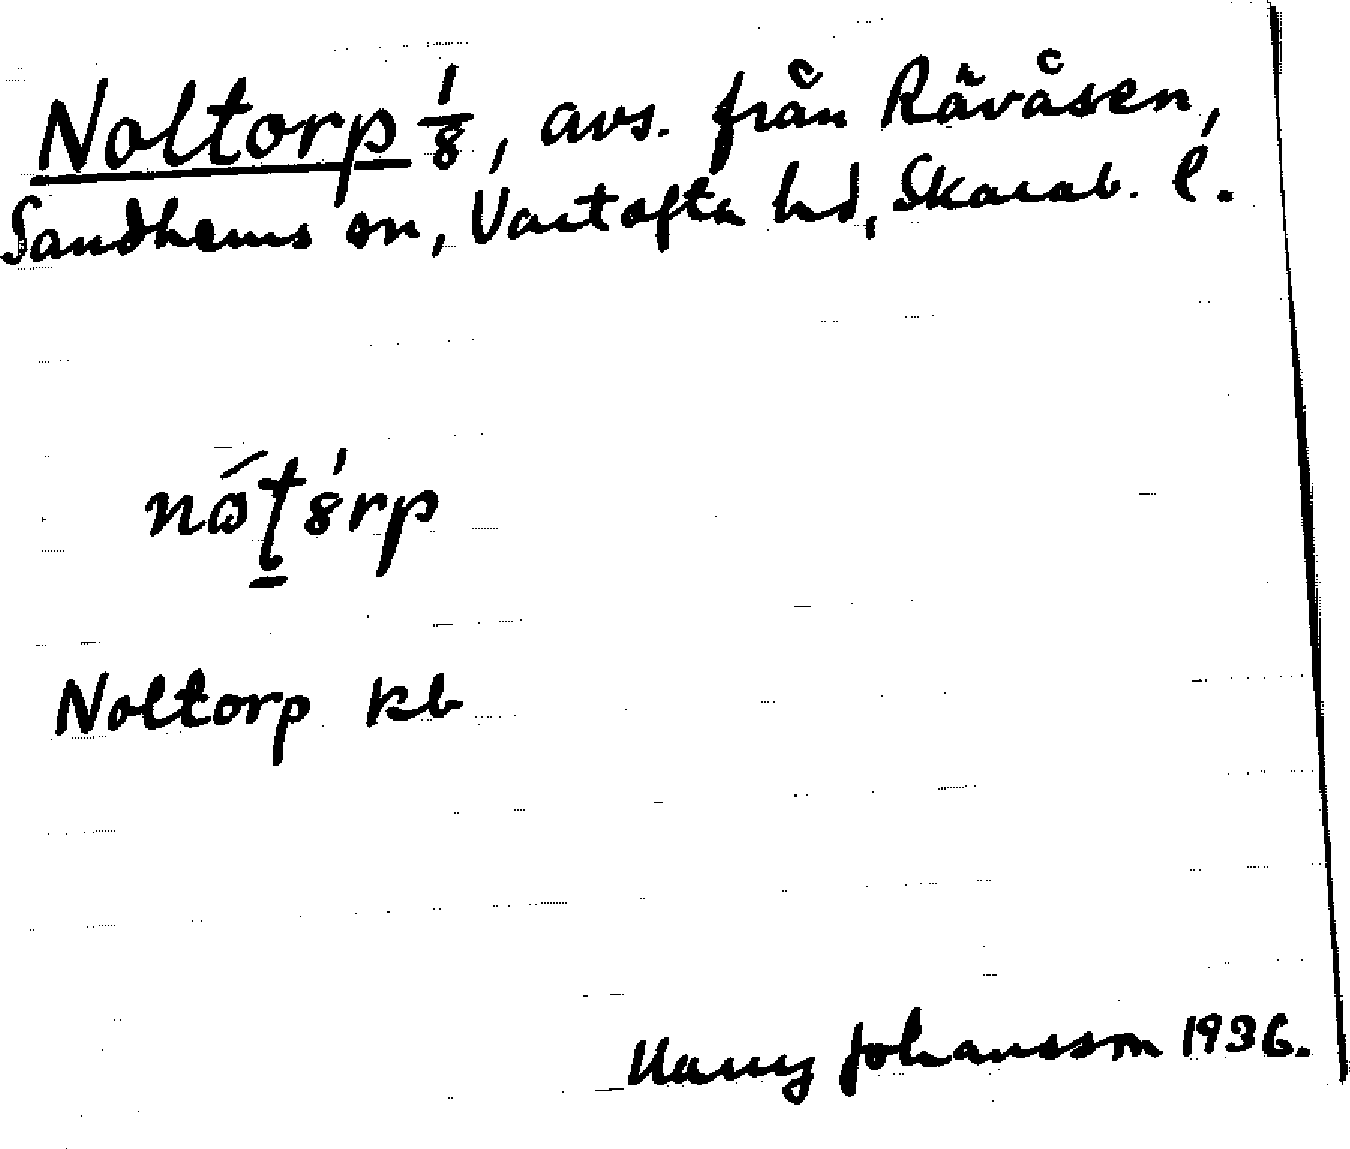 Noltorp 1/8, avs. från Rävåsen,
Sandhems sn, Vartofta hd, Skarab. l.
Noltorp kb
Harry Johansson 1936.